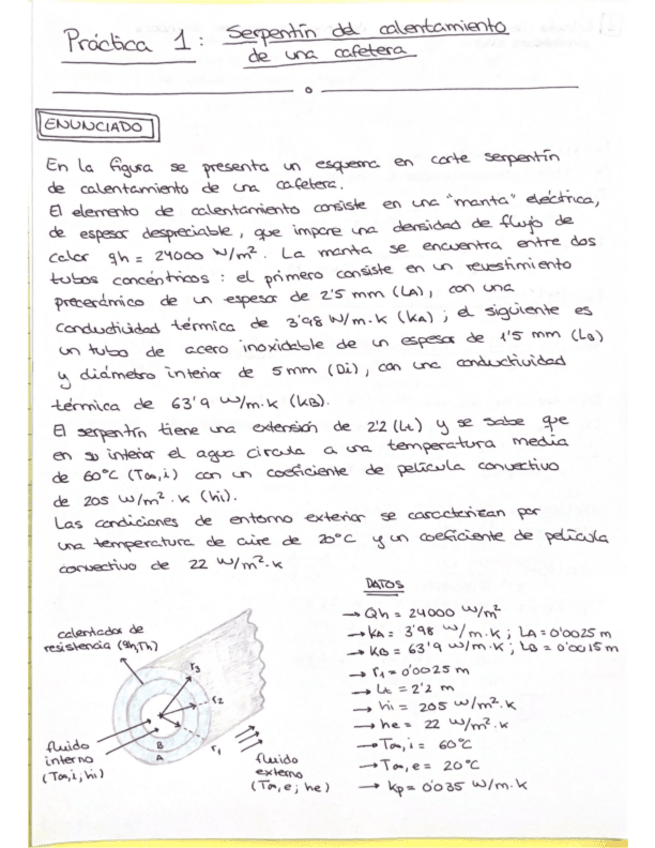 Práctica 1: Serpentín del calentamiento
de una cafetera
ENUNCIADO
En la figura se presenta un esquema en corte serpentín
de calentamiento de una cafetera.
El elemento de calentamiento consiste en una "manta" eléctrica,
de espesor despreciable, que impone una densidad de flujo de
calor qh = 24000 W/m². La manta se encuentra entre dos
tubos concéntricos: el primero consiste en un revestimiento
precerámico de un espesor de 2'5 mm (LA), con una
conductividad térmica de 3'98 W/m·K (kA); el siguiente es
un tubo de acero inoxidable de un espesor de 1'5 mm (LB)
y diámetro interior de 5 mm (Di), con una conductividad
térmica de 63'9 W/m·K (kB).
El serpentín tiene una extensión de 2'2 (Lt) y se sabe que
en su interior el agua circula a una temperatura media
de 60°C (T∞,i) con un coeficiente de película convectivo
de 205 W/m²·K (hi).
Las condiciones de entorno exterior se caracterizan por
una temperatura de aire de 20°C y un coeficiente de película
convectivo de 22 W/m²·K
DATOS
→ Qh = 24000 W/m²
→ kA = 3'98 W/m·K ; LA = 0'0025 m
→ kB = 63'9 W/m·K ; LB = 0'0015 m
→ r1 = 0'0025 m
→ Lt = 2'2 m
→ hi = 205 W/m²·K
→ he = 22 W/m²·K
→ T∞,i = 60°C
→ T∞,e = 20°C
→ kp = 0'035 W/m·K
calentador de
resistencia (qh,Th)
r3
r2
r1
B
A
fluido
interno
(T∞,i, hi)
fluido
externo
(T∞,e; he)